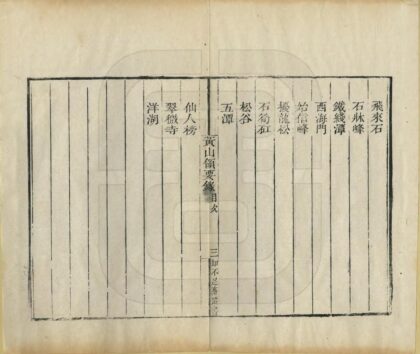 飛來石
石牀峰
鐵綫潭
西海門
始信峰
擾龍松
石筍矼
松谷
五潭
黃山領要錄 目次
三 知不足齋叢書
仙人榜
翠微寺
洋湖